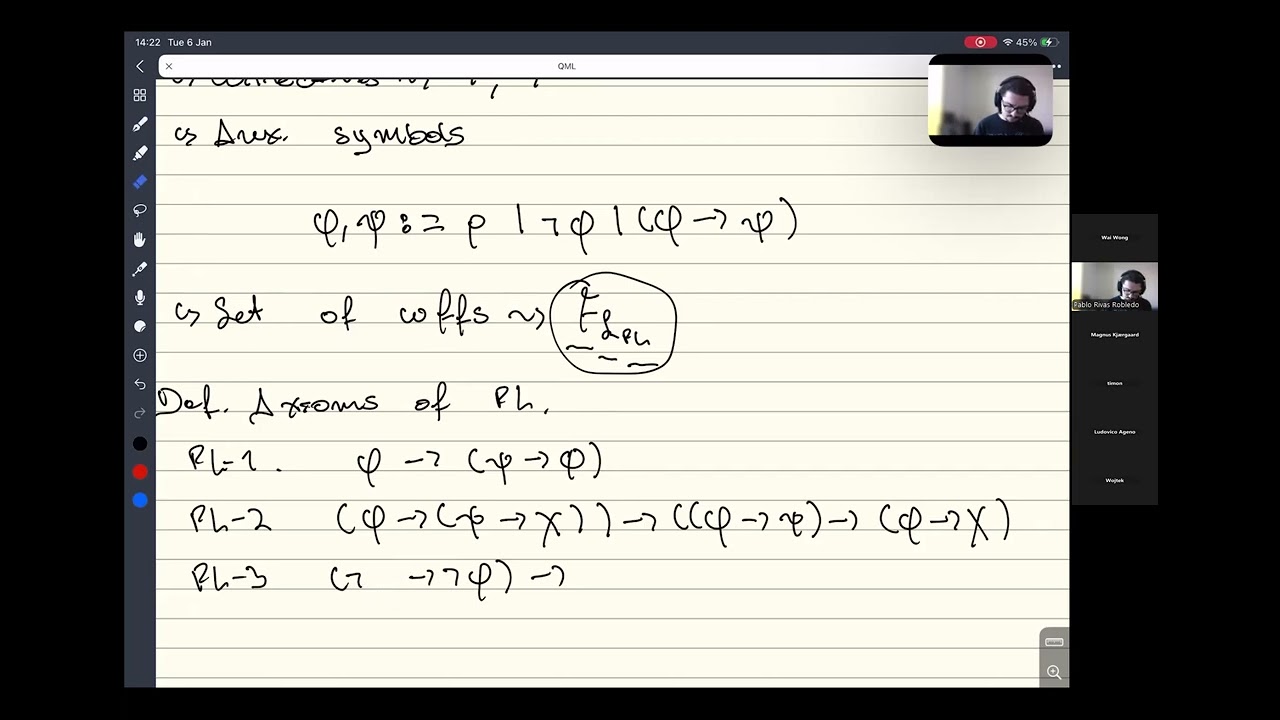 14:22 Tue 6 Jan 45%
QML
↳ Aux. symbols
φ, ψ ::= p | ¬φ | (φ → ψ)
↳ Set of wffs ⇝ F_L_PL
Def. Axioms of PL.
PL-1. φ → (ψ → φ)
PL-2 (φ → (ψ → χ)) → ((φ → ψ) → (φ → χ)
PL-3 (¬ → ¬φ) →
Wai Wong
Pablo Rivas Robledo
Magnus Kjærgaard
timon
Ludovico Ageno
Wojtek